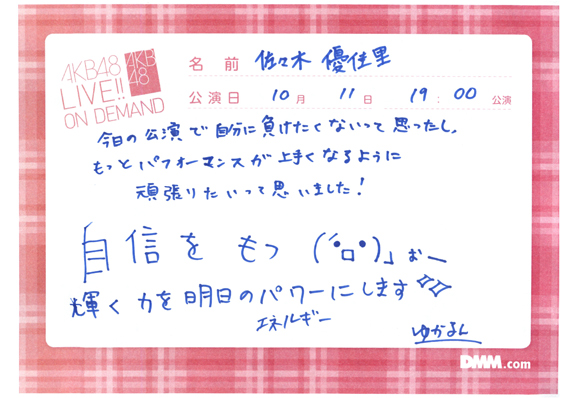 AKB48
LIVE!!
ON DEMAND
AKB
48
名前 佐々木 優佳里
公演日 10月 11日 19:00 公演
今日の公演で自分に負けたくないって思ったし、
もっとパフォーマンスが上手くなるように
頑張りたいって思いました!
自信をもつ (`・ロ・´)」ぉー
輝く力を明日のパワーにします
エネルギー
ゆかるん
DMM.com